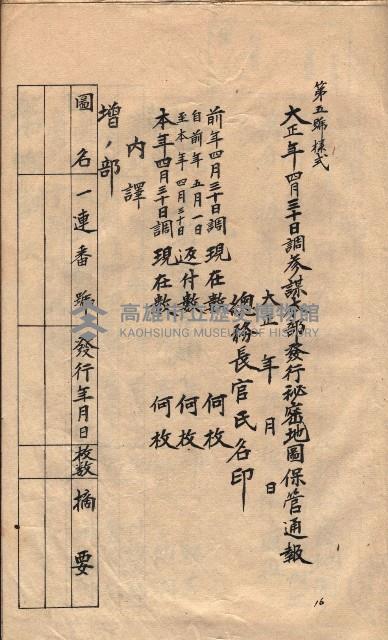 第五號樣式
大正年四月三十日調参謀本部發行秘密地圖保管通報
大正 年 月 日
總務長官氏名印
前年四月三十日調現在數 何枚
自前年五月一日
至本年四月三十日
返付數 何枚
本年四月三十日調現在數 何枚
內譯
增ノ部
圖名
一連番號
發行年月日
枚数
摘要
高雄市立歷史博物館
KAOHSIUNG MUSEUM OF HISTORY
16